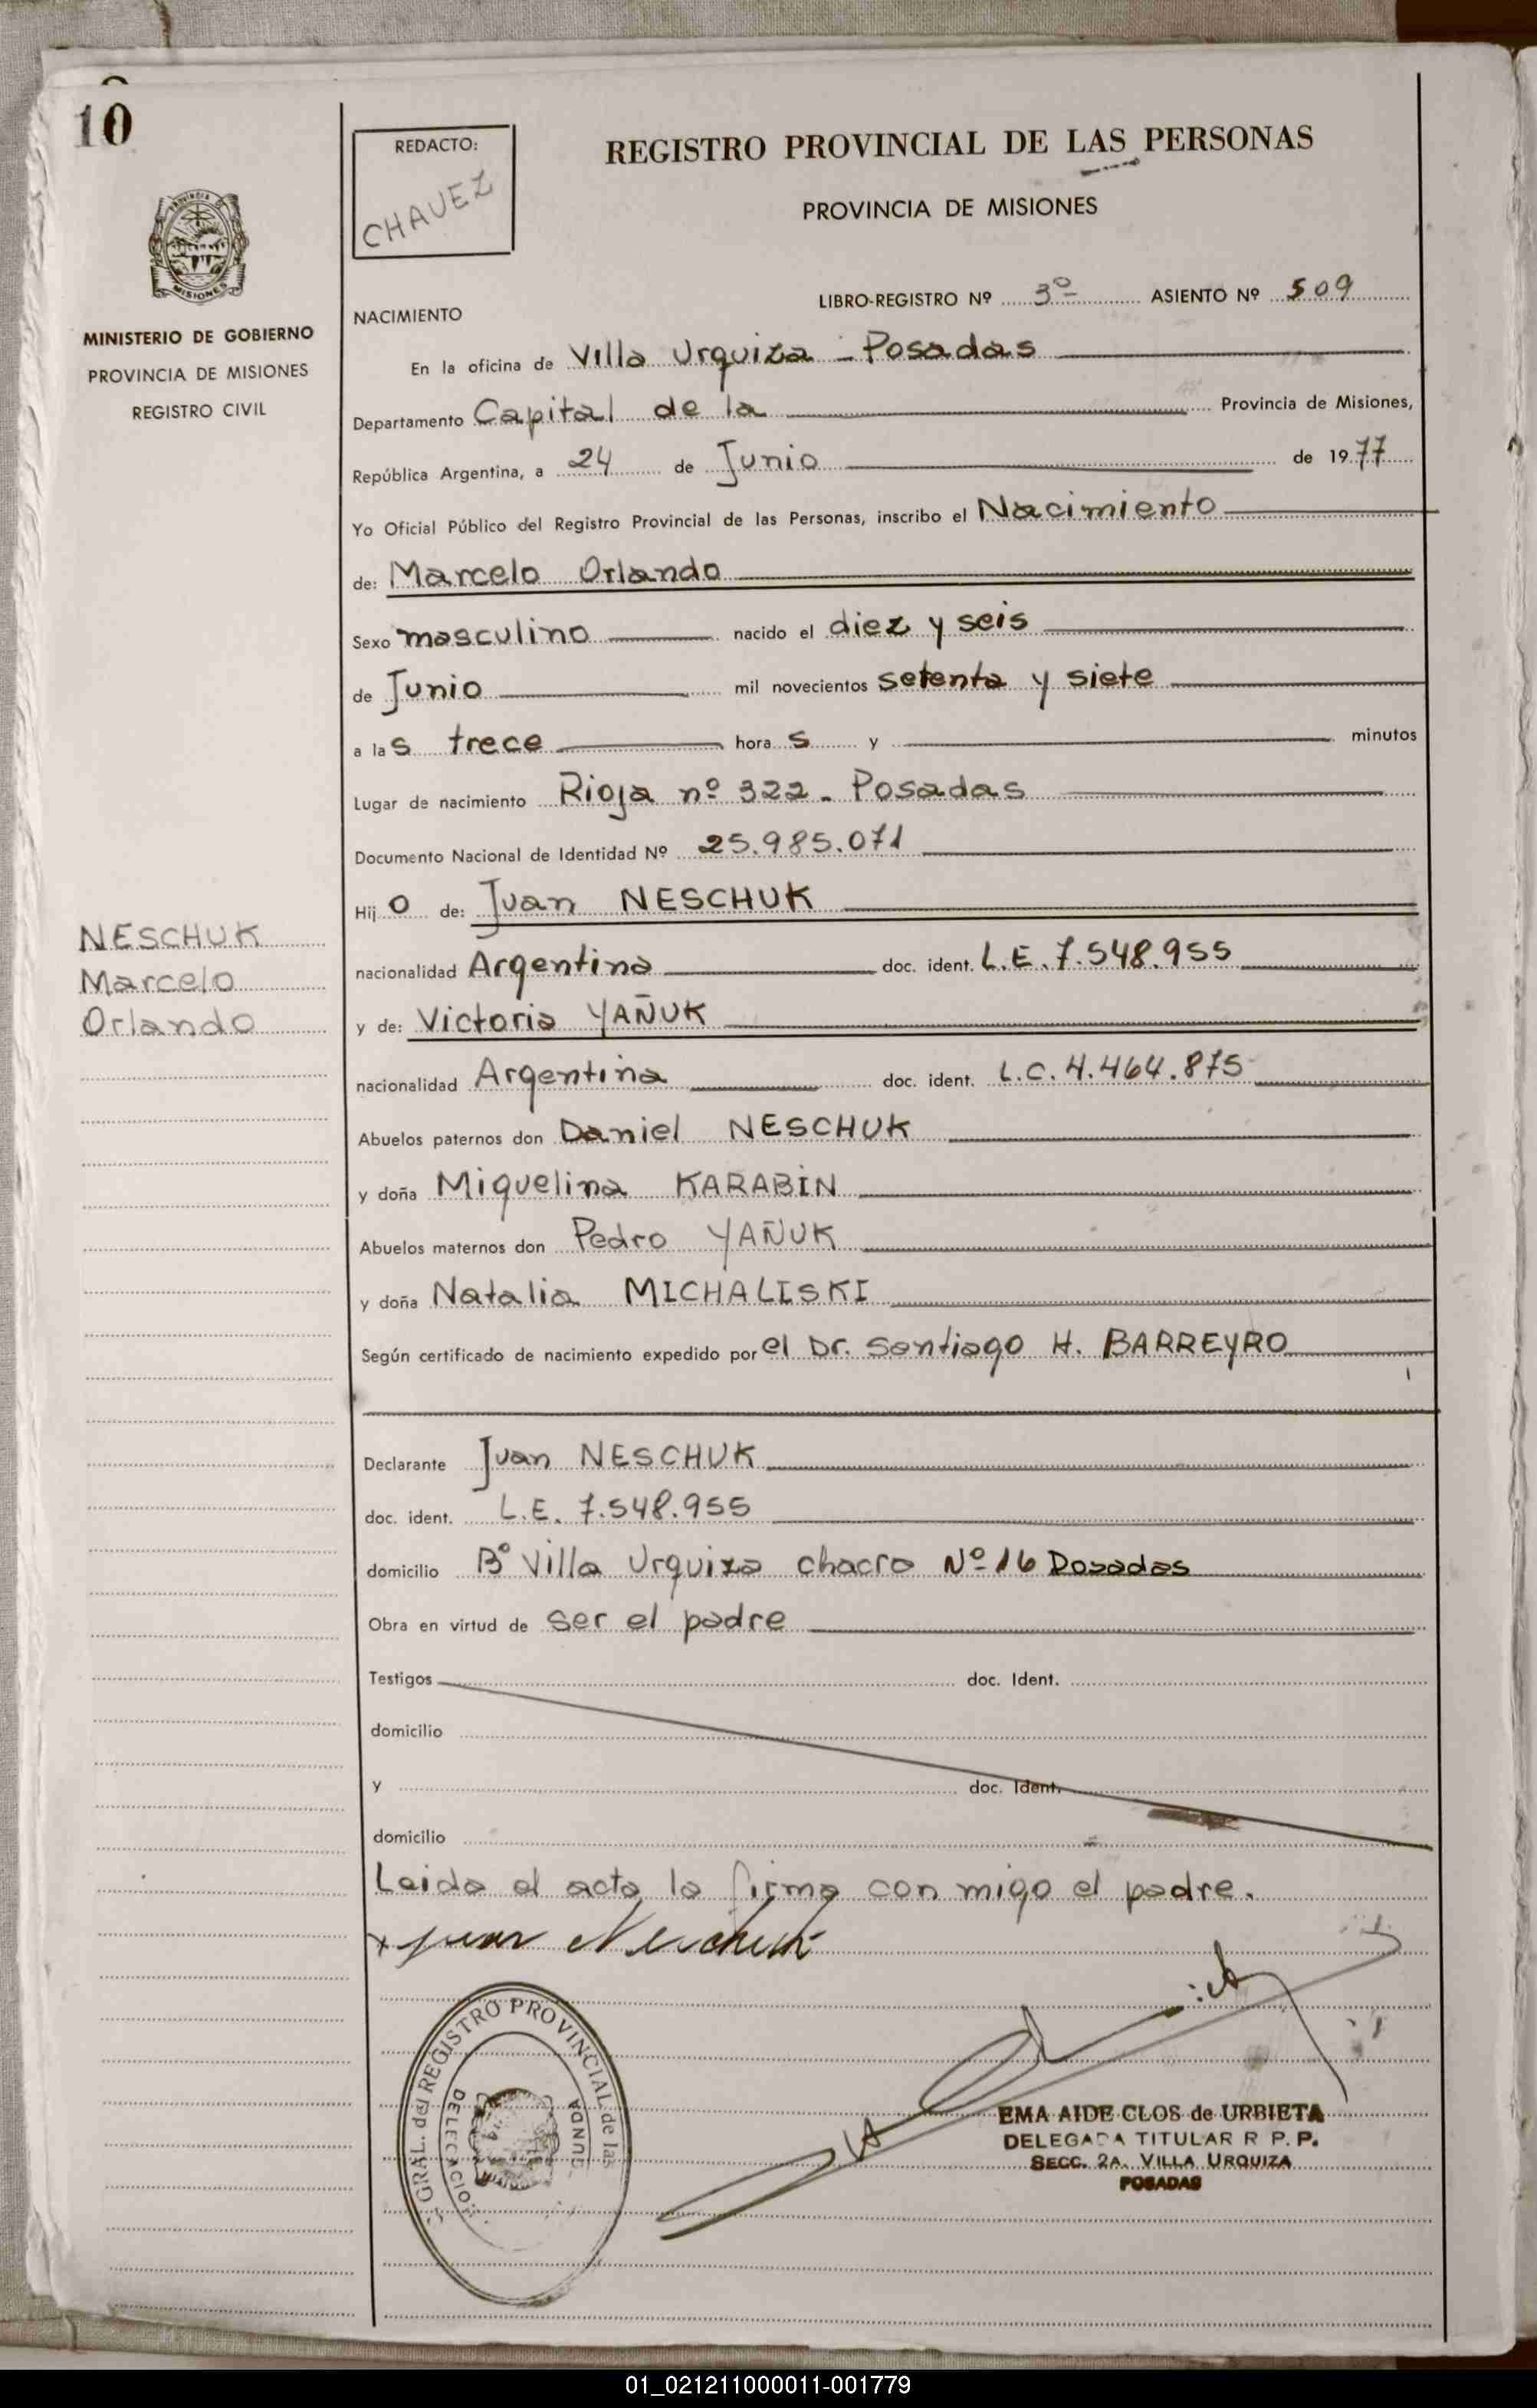 10
REDACTO:
CHAVEZ
REGISTRO PROVINCIAL DE LAS PERSONAS
PROVINCIA DE MISIONES
MISIONES
MINISTERIO DE GOBIERNO
PROVINCIA DE MISIONES
REGISTRO CIVIL
LIBRO-REGISTRO Nº 3º ASIENTO Nº 509
NACIMIENTO
En la oficina de Villa Urquiza - Posadas
Departamento Capital de la Provincia de Misiones,
República Argentina, a 24 de Junio de 1977
Yo Oficial Público del Registro Provincial de las Personas, inscribo el Nacimiento
de: Marcelo Orlando
Sexo masculino nacido el diez y seis
de Junio mil novecientos setenta y siete
a las trece horas y minutos
Lugar de nacimiento Rioja nº 322 - Posadas
Documento Nacional de Identidad Nº 25.985.071
Hijo de: Juan NESCHUK
NESCHUK
Marcelo
Orlando
nacionalidad Argentina doc. ident. L.E. 7.548.955
y de: Victoria YAÑUK
nacionalidad Argentina doc. ident. L.C. 4.464.875
Abuelos paternos don Daniel NESCHUK
y doña Miquelina KARABIN
Abuelos maternos don Pedro YAÑUK
y doña Natalia MICHALISKI
Según certificado de nacimiento expedido por el Dr. Santiago H. BARREYRO
Declarante Juan NESCHUK
doc. ident. L.E. 7.548.955
domicilio Bº Villa Urquiza chacra Nº 16 Posadas
Obra en virtud de ser el padre
Testigos doc. Ident.
domicilio
y doc. Ident.
domicilio
Leida el acta la firma con migo el padre.
x Juan Neschuk
GRAL. del REGISTRO PROVINCIAL de las
DELEGACION
EMA AIDE CLOS de URBIETA
DELEGADA TITULAR R P. P.
SECC. 2A. VILLA URQUIZA
POSADAS
01_021211000011-001779